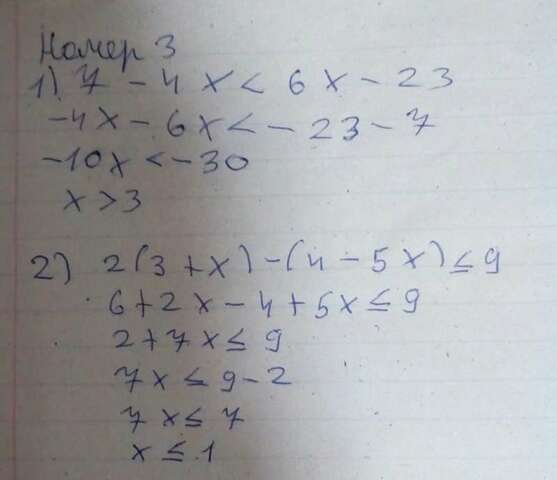 Номер 3
1) 7 - 4x < 6x - 23
-4x - 6x < -23 - 7
-10x < -30
x > 3
2) 2(3 + x) - (4 - 5x) ≤ 9
6 + 2x - 4 + 5x ≤ 9
2 + 7x ≤ 9
7x ≤ 9 - 2
7x ≤ 7
x ≤ 1